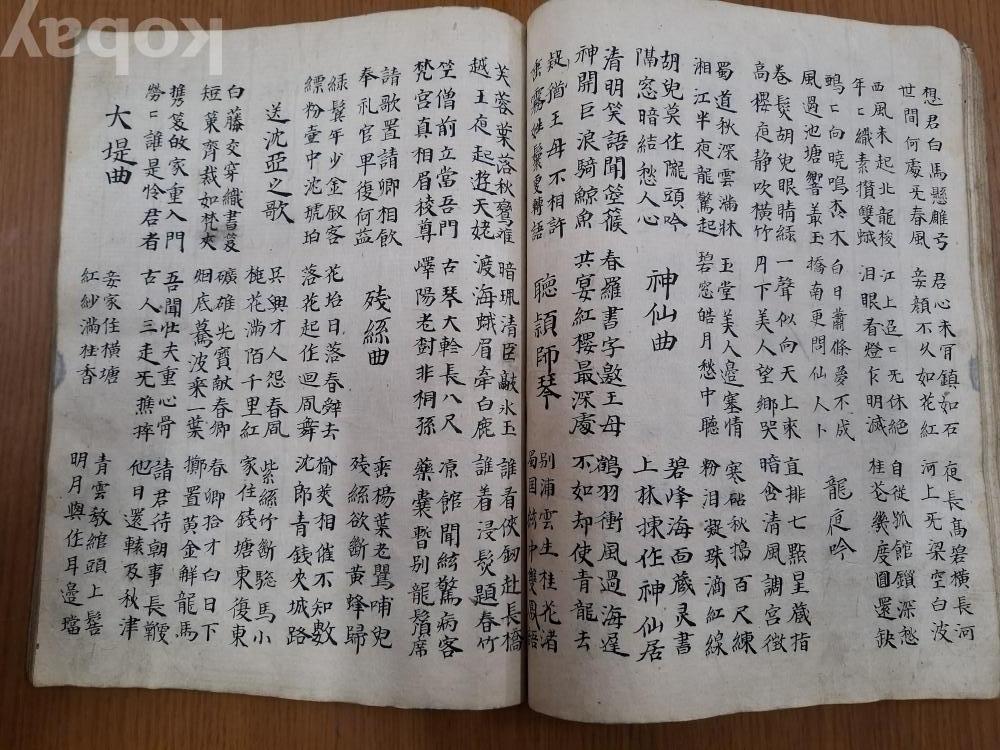 想君白馬懸雕弓
世間何處旡春風
君心未肯鎭如石
妾顔不久如花紅
夜長高碧橫長河
河上旡梁空白波
西風未起北龍梭
年二織素攢雙蛾
江上迢二旡休絶
淚眼看燈乍明滅
自從孤館鎖深愁
桂花幾度圓還缺
鴉二向曉鳴森木
風過池塘響叢玉
白日蕭條夢不成
橋南更問仙人卜
龍夜吟
卷髮胡兒眼睛綠
高樓夜静吹橫竹
一聲似向天上來
月下美人望鄉哭
直排七點星藏指
暗合清風調宮徵
蜀道秋深雲滿林
湘江半夜龍驚起
玉堂美人邉塞情
碧窓皓月愁中聽
寒砧秋搗百尺練
粉淚凝珠滴紅線
胡兒莫作隴頭吟
隔窓暗結愁人心
神仙曲
碧峰海面藏灵書
上林揀作神仙居
清明笑語聞箜篌
神開巨浪騎鯨魚
春羅書字邀王母
共宴紅樓最深處
鶴羽衝風過海遲
不如却使青龍去
疑猶王母不相許
垂霧妖鬟更轉語
聽頴師琴
別浦雲生桂花渚
蜀國絃中雙鳳語
芙蓉葉落秋鸞離
越王夜起遊天姥
暗珮清臣敲水玉
渡海蛾眉牽白鹿
誰看俠劒赴長橋
誰着浸髮題春竹
竺僧前立當吾門
梵宮真相眉稜尊
古琴大軫長八尺
嶧陽老樹非桐孫
凉館聞絃驚病客
藥囊暫別龍鬚席
請歌置請卿相飲
奉礼官卑復何益
殘絲曲
垂楊葉老鶯哺兒
殘絲欲斷黄蜂歸
綠鬢年少金釵客
縹粉壷中沈琥珀
花坮日落春辤去
落花起作迴風舞
榆莢相催不知數
沈郎青錢夾城路
送沈亞之歌
吳興才人怨春風
桃花滿陌千里紅
紫絲竹斷驄馬小
家住錢塘東復東
白藤交穿織書笈
短策齊裁如梵夾
礦雄光寶献春卿
烟底驀波乘一葉
春卿拾才白日下
擲置黄金解龍馬
携笈故家重入門
勞二誰是怜君者
吾聞壮夫重心骨
古人三走旡摧捽
請君待朝事長鞭
他日還轅及秋津
大堤曲
妾家住橫塘
紅紗滿桂香
青雲教綰頭上髻
明月與作耳邉璫
kobay